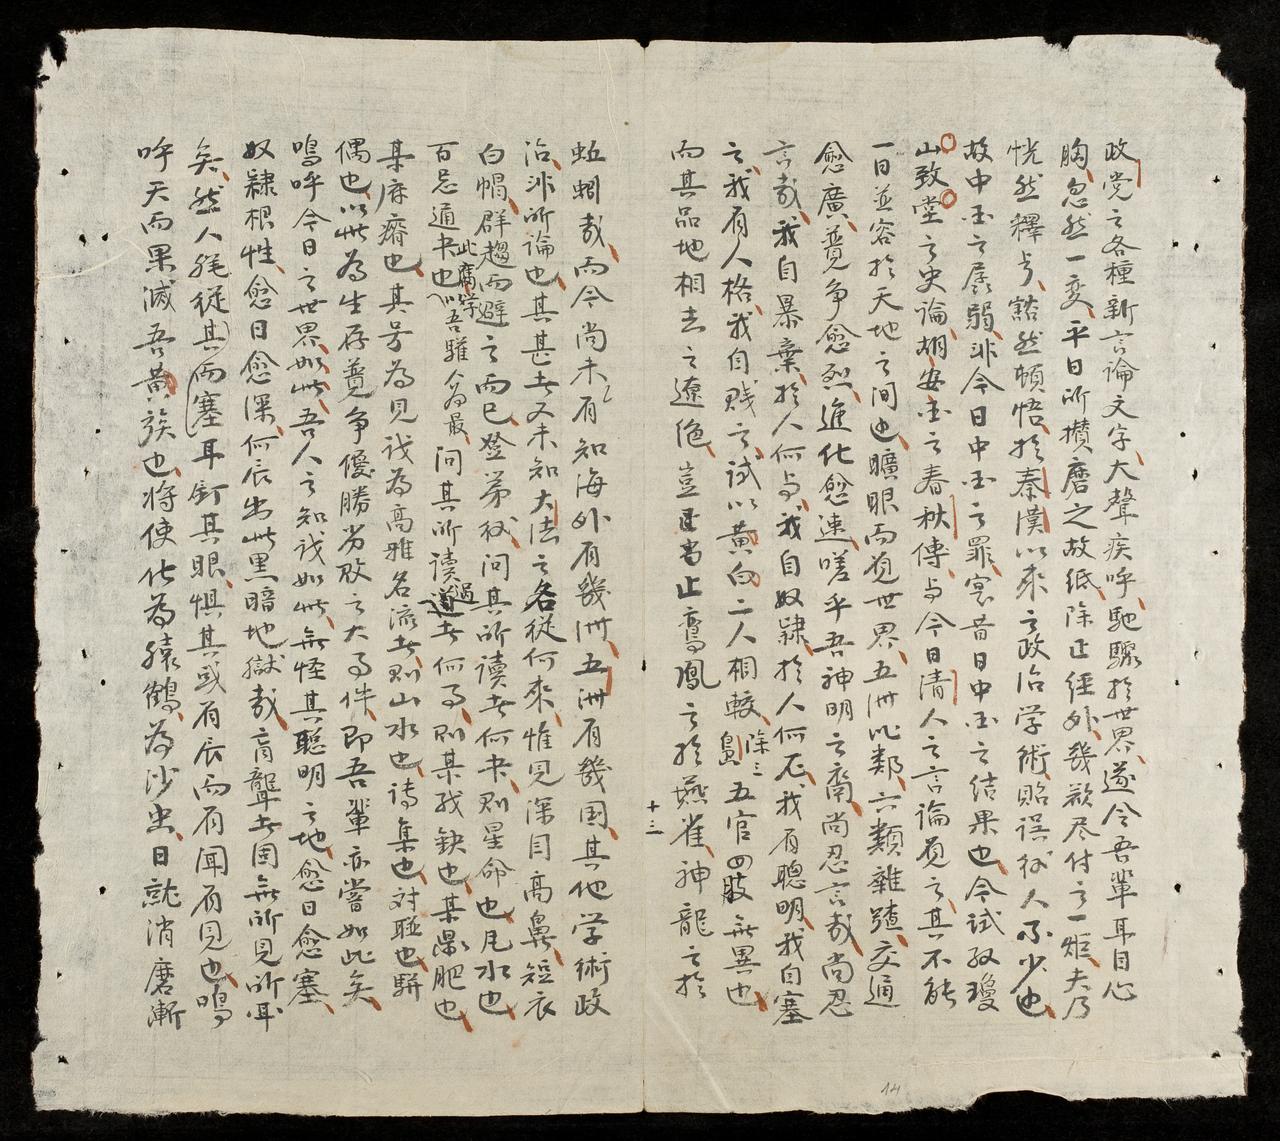 政党之各種新言論文字大聲疾呼馳驟於世界遂令吾輩耳目心
胸忽然一变平日所攢磨之故纸除正經外幾欲尽付之一炬夫乃
恍然釋矣豁然頓悟於秦漢以來之政治学術貽误於人不少也
故中国之孱弱非今日中国之罪实昔日中国之结果也今試取瓊
山致堂之史論胡安国之春秋傳与今日清人之言論覓之其不能
一日並容於天地之间也曠眼而覓世界五洲比鄰六類雜蹟交通
愈廣競争愈烈進化愈速嗟乎吾神明之裔尚忍言哉尚忍
言哉我自暴棄於人何与我自奴隸於人何尤我有聰明我自塞
之我有人格我自贱之試以黄白二人相較除三島五官四肢無異也
而其品地相去之遼绝豈止鸞鳳之於燕雀神龍之於
十三
蚯蚓哉而今尚未有知海外有幾洲五洲有幾国其他学術政
治非所論也其甚者又未知大法之各従何來惟見深目高鼻短衣
白帽群趨而避之而已登第後问其所读者何书则星命也風水也
百忌通书也此腐学以吾驩人為最问其所读過者何则某残缺也某鼎肥也
某麻瘠也其号為見识為高雅名流者则山水也诗集也对聯也駢
偶也以此為生存競争優勝劣败之大事件即吾輩亦嘗如此矣
嗚呼今日之世界如此吾人之知识如此無怪其聰明之地愈日愈塞
奴隸根性愈日愈深何辰出此黑暗地獄哉盲聾者固無所見所耳
矣然人能従其而塞耳釘其眼惧其或有辰而有闻有見也嗚
呼天而果滅吾黄族也将使化為猿鶴為沙虫日就消磨漸
14